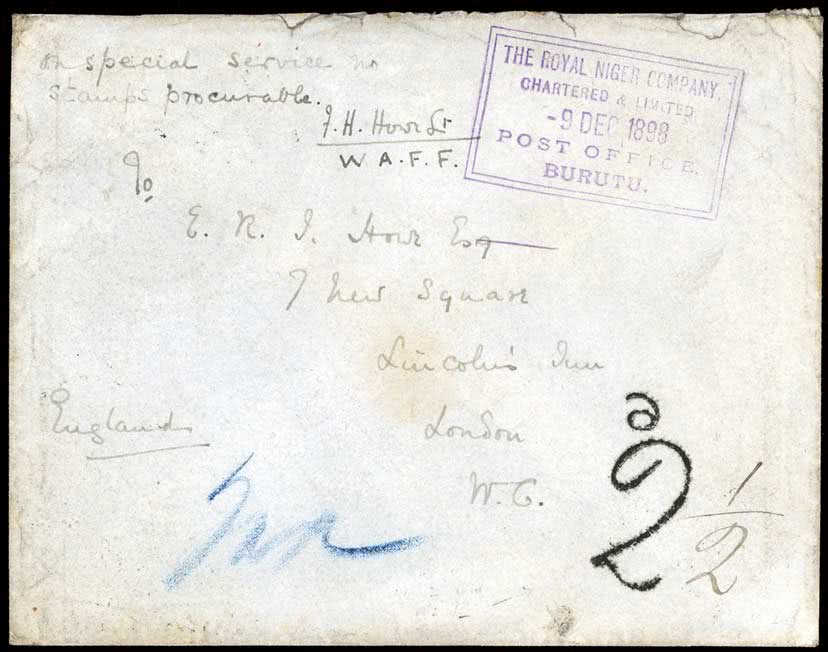 on special service no
stamps procurable.
F. H. Howe Lt
W. A. F. F.
THE ROYAL NIGER COMPANY,
CHARTERED & LIMITED.
-9 DEC 1898
POST OFFICE,
BURUTU.
To
E. R. J. Howe Esq
7 New Square
Lincoln's Inn
London
W.C.
England
Tax
2 1/2